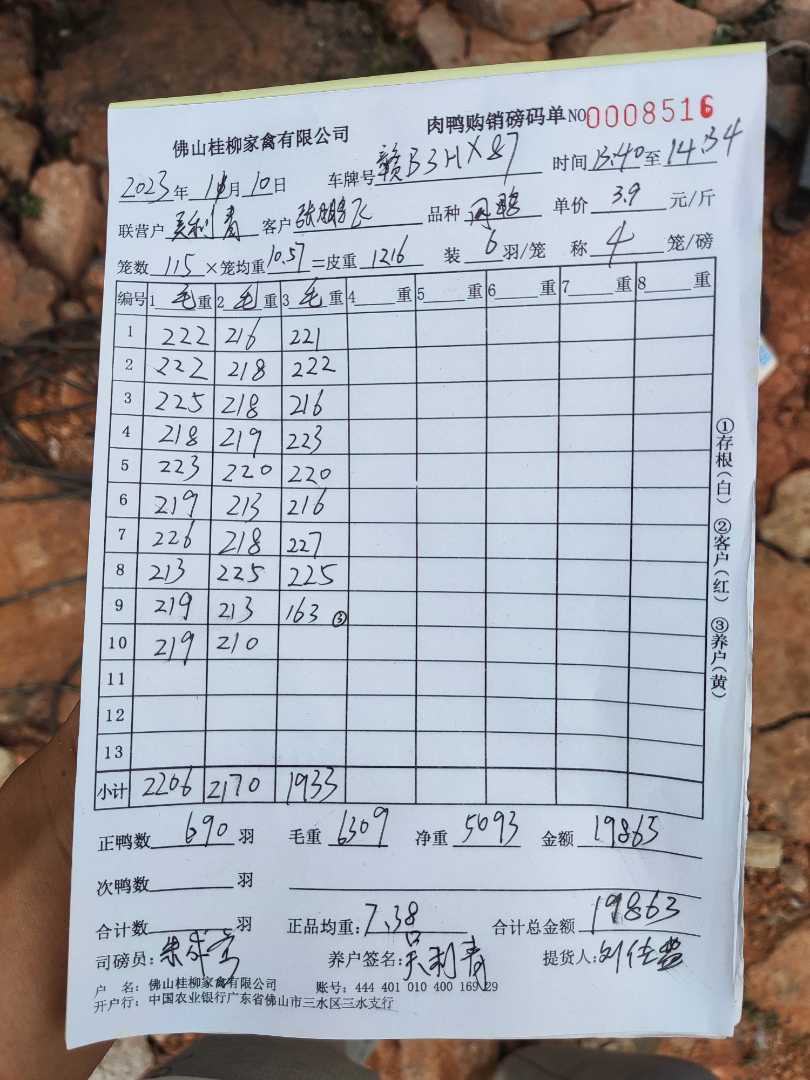 佛山桂柳家禽有限公司 肉鸭购销磅码单 NO 0008516
2023年 11月 10日 车牌号 赣B3HX87 时间 13:40 至 14:34
联营户 吴利青 客户 张鹏飞 品种 单价 3.9 元/斤
笼数 115 ×笼均重 10.57 =皮重 1216 装 6 羽/笼 称 4 笼/磅
编号 1 毛 重 2 毛 重 3 毛 重 4 重 5 重 6 重 7 重 8 重
1 222 216 221
2 222 218 222
3 225 218 216
4 218 219 223
5 223 220 220
6 219 213 216
7 226 218 227
8 213 225 225
9 219 213 163 ③
10 219 210
11
12
13
小计 2206 2170 1933
正鸭数 690 羽 毛重 6309 净重 5093 金额 19863
次鸭数 羽
合计数 羽 正品均重: 7.38 合计总金额 19863
司磅员: 养户签名: 吴利青 提货人:
户 名: 佛山桂柳家禽有限公司 账号: 444 401 010 400 169 29
开户行: 中国农业银行广东省佛山市三水区三水支行
①存根(白) ②客户(红) ③养户(黄)